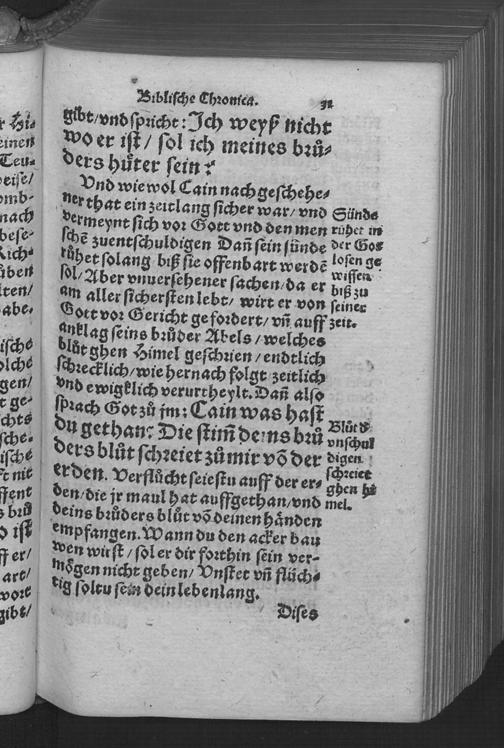 Biblische Chronica. 31
gibt/vnd spricht: Ich weyß nicht
wo er ist/ sol ich meines brů-
ders hüter sein?
Vnd wiewol Cain nach geschehe-
ner that ein zeitlang sicher war/ vnd
vermeynt sich vor Gott vnd den men
schē zuentschuldigen Dañ sein sünde
růhet solang biß sie offenbart werdē
sol/ Aber vnuersehener sachen/ da er
am aller sichersten lebt/ wirt er von
Gott vor Gericht gefordert/ vñ auff
anklag seins brůder Abels/ welches
blůt ghen Himel geschrien/ endtlich
schrecklich/ wie hernach folgt zeitlich
vnd ewigklich verurtheylt. Dañ also
sprach Got zů jm: Cain was hast
du gethan? Die stim̃ deins brů
ders blůt schreiet zů mir vō der
erden. Verflůcht seiestu auff der er-
den/ die jr maul hat auffgethan/ vnd
deins brůders blůt vō deinen händen
empfangen. Wann du den acker bau
wen wirst/ sol er dir forthin sein ver-
mögen nicht geben/ Vnstet vñ flüch-
tig soltu sein dein lebenlang.
Dises
Sünds
růhet in
der Got
losen ge
wissen
biß zu
seiner
zeit.
Blůts
vnschul
digen
schreiet
ghen hi
mel.